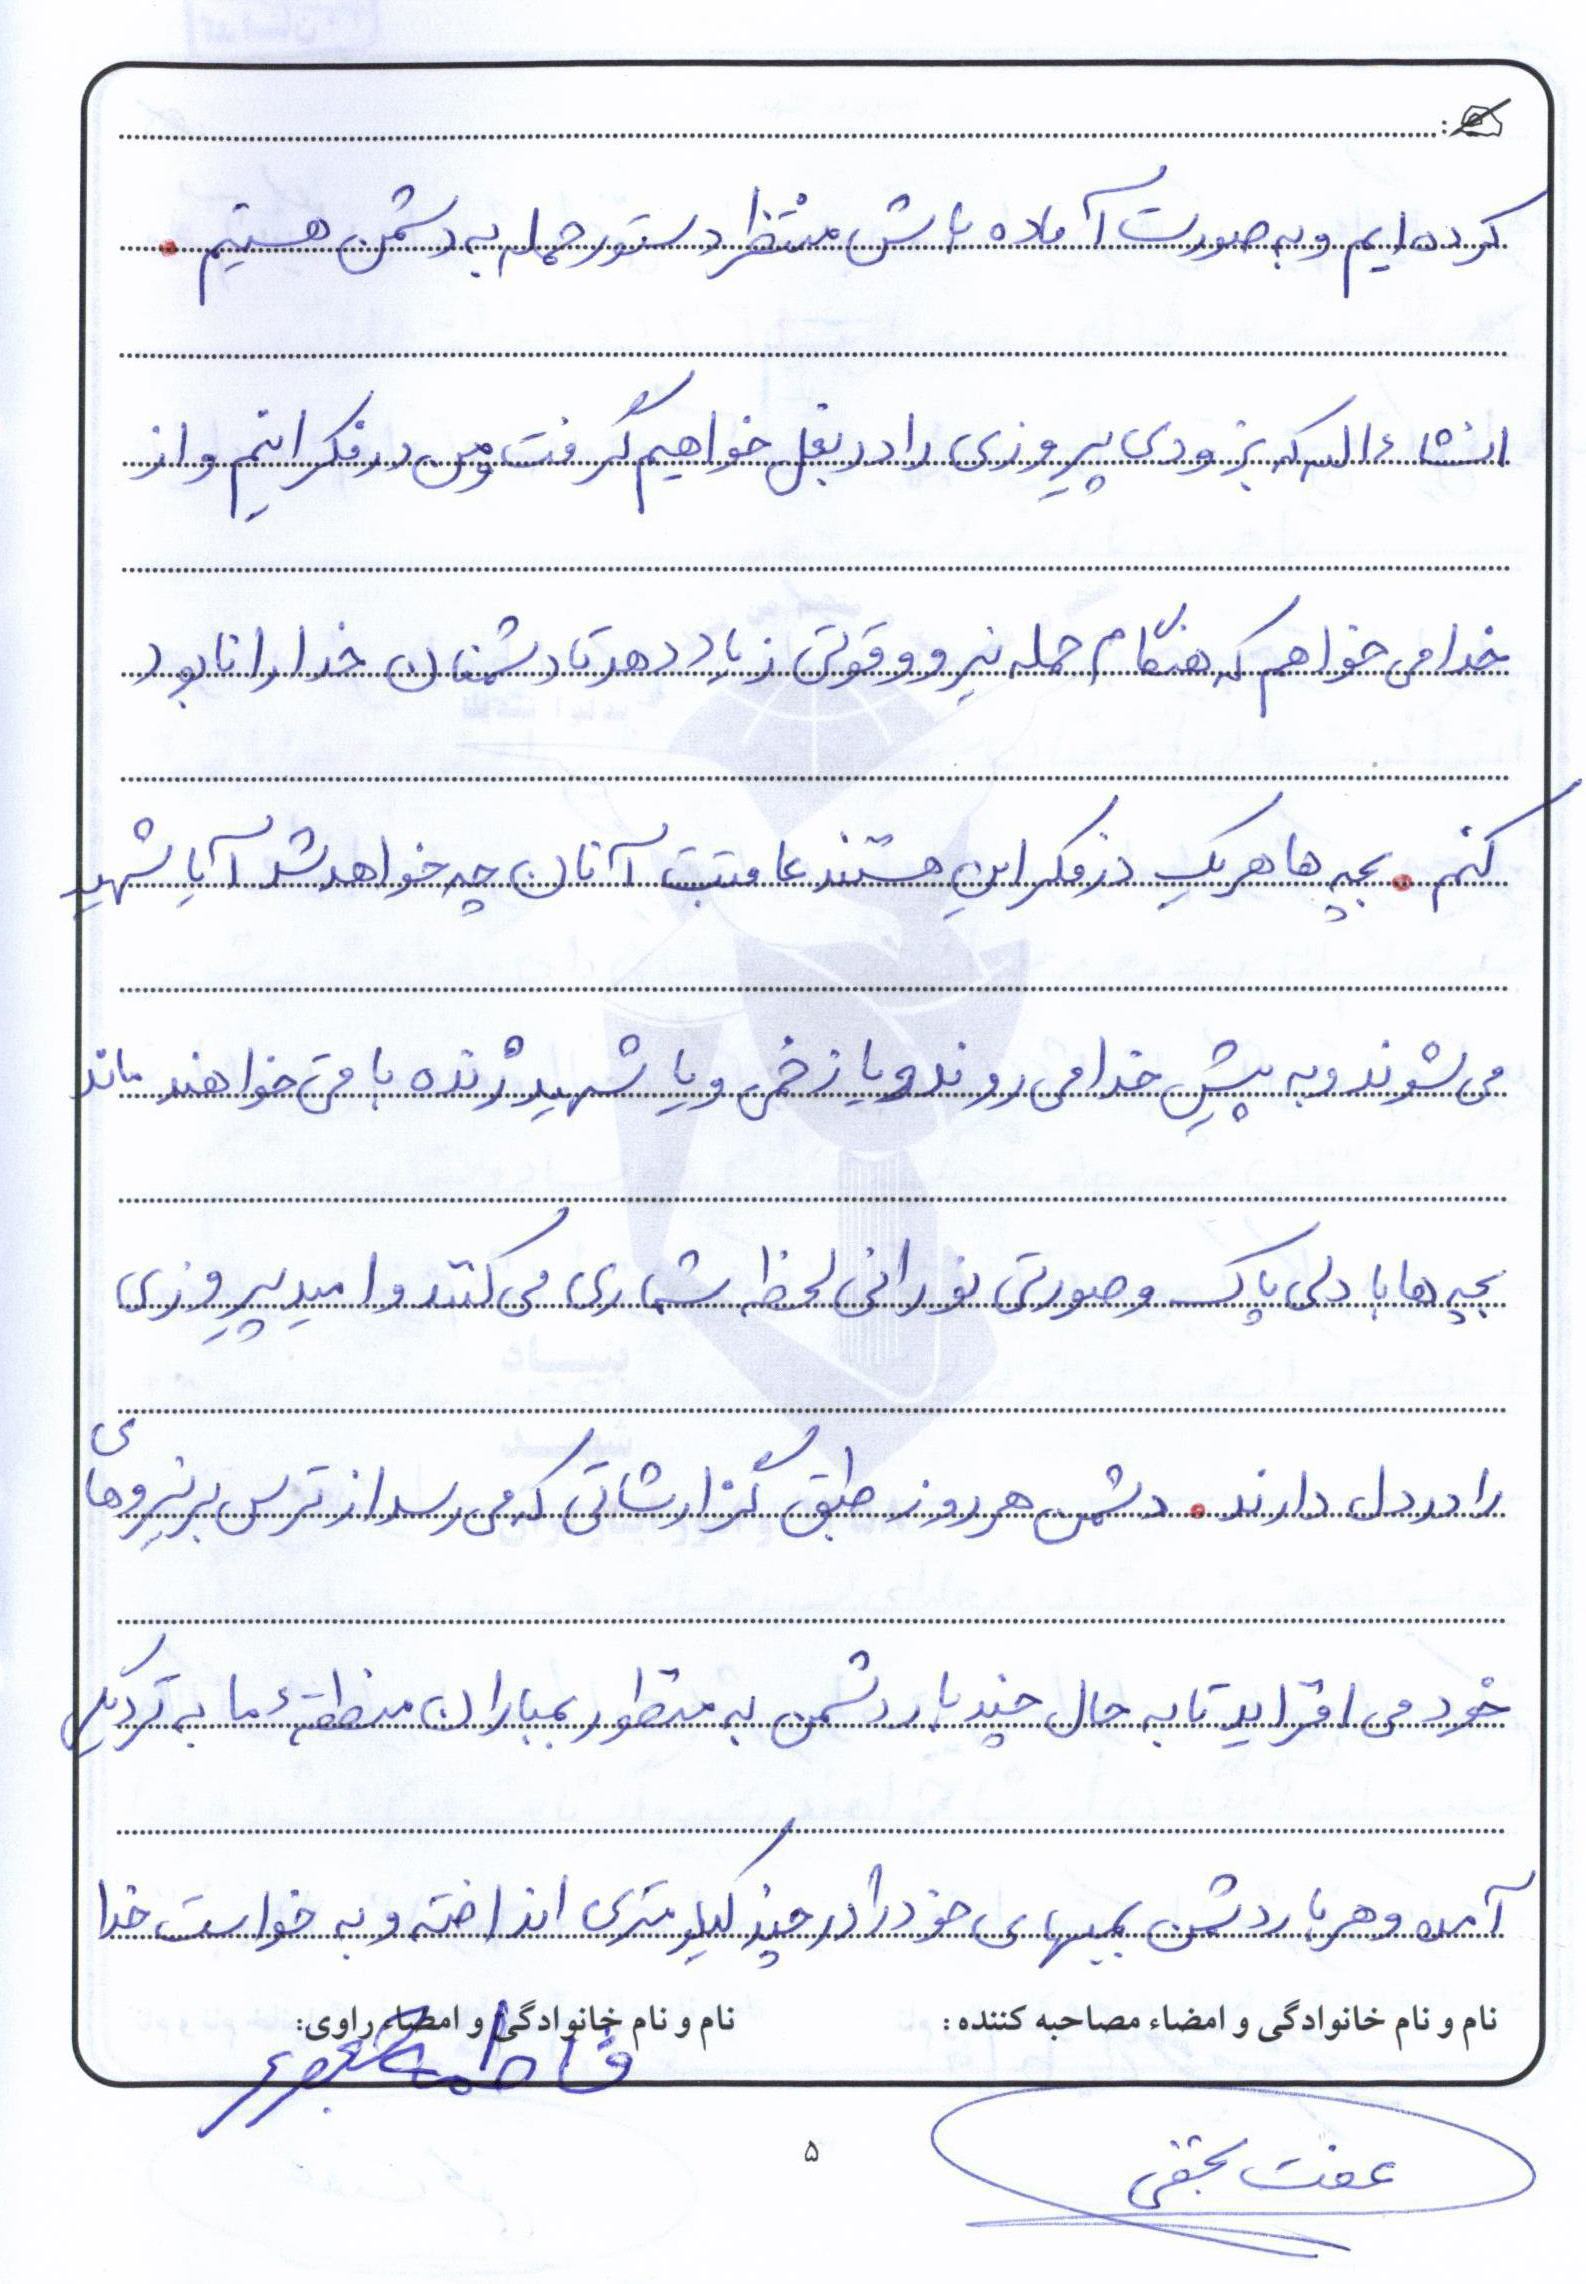 کرده ایم و به صورت آماده باش منتظر دستور حمله به دشمن هستیم .
انشاءالله که بزودی پیروزی را در بغل خواهیم گرفت و من در فکر اینم و از
خدا می خواهم که هنگام حمله نیرو و قوتی زیاد دهد تا دشمنان خدا را نابود
کنم . بچه ها هر یک در فکر این هستند عاقبت آنان چه خواهد شد آیا شهید
می شوند و به پیش خدا می روند و یا زخمی و یا شهید زنده باقی خواهند ماند
بچه ها با دلی پاک و صورتی نورانی لحظه شماری می کنند و امید پیروزی
را در دل دارند . دشمن هر روز طبق گزارشاتی که می رسد از ترس بر نیروهای
خود می افزاید تا به حال چند بار دشمن به منظور بمباران منطقهٔ ما به نزدیک
آمده و هر بار دشمن بمبهای خود را در چند کیلومتری انداخته و به خواست خدا
نام و نام خانوادگی و امضاء مصاحبه کننده : نام و نام خانوادگی و امضاء راوی:
فاطمه
عفت
۵